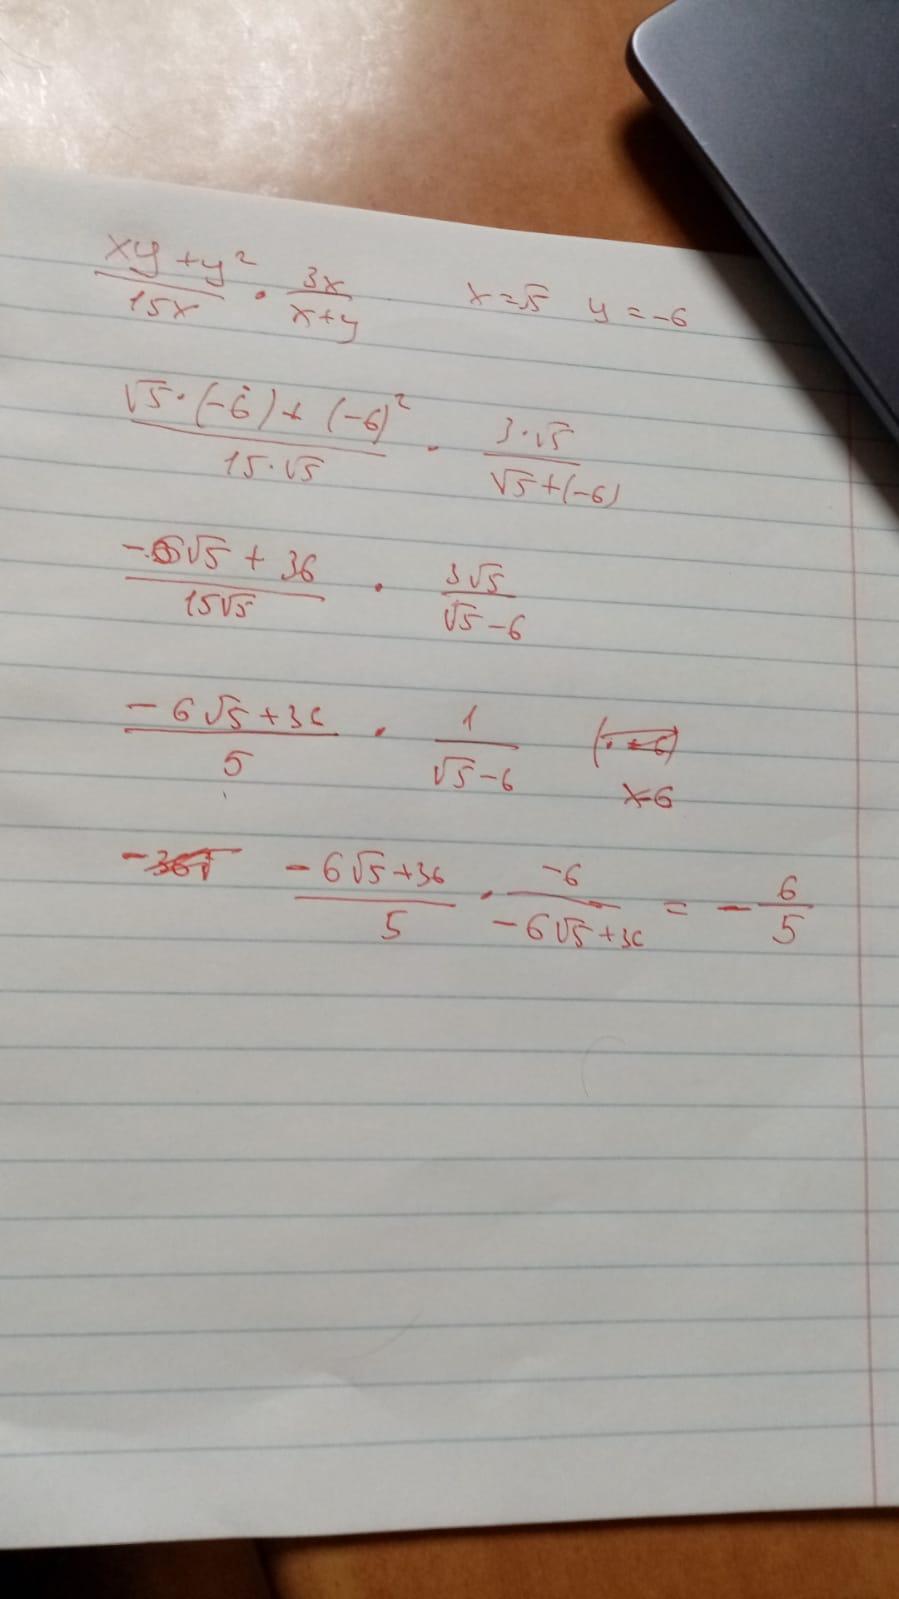 xy + y² / 15x · 3x / x+y    x = √5    y = -6
√5 · (-6) + (-6)² / 15·√5 · 3·√5 / √5 + (-6)
-6√5 + 36 / 15√5 · 3√5 / √5 - 6
-6√5 + 36 / 5 · 1 / √5 - 6
x-6
-6√5 + 36 / 5 · -6 / -6√5 + 36 = - 6 / 5